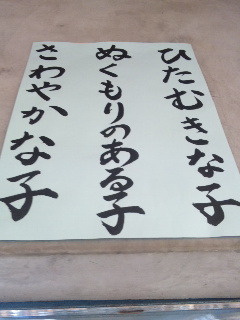 ひたむきな子
ぬくもりのある子
さわやかな子